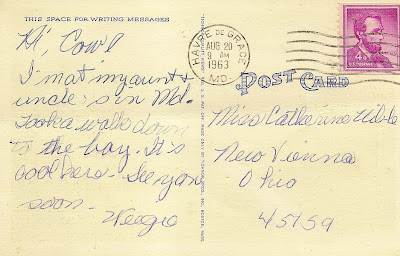 THIS SPACE FOR WRITING MESSAGES
Hi, Cowl
I'm at my aunt &
uncle's in Md.
Took a walk down
to the bay. It's
cool here. See you
soon.
HAVRE DE GRACE
AUG 20
9 AM
1963
MD.
4¢
POST CARD
Miss Catherine
New Vienna
Ohio
45159